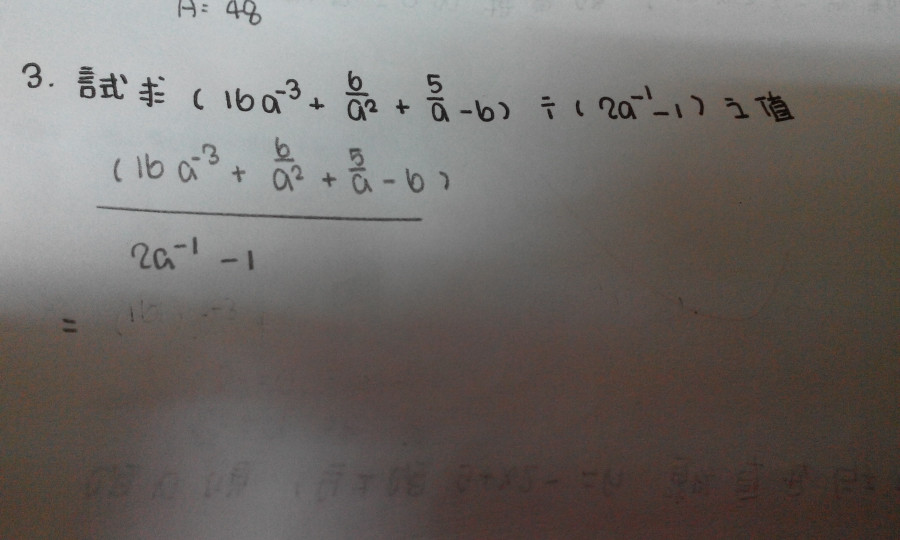 A = 48
3. 試求 (16a⁻³ + 6/a² + 5/a - 6) ÷ (2a⁻¹ - 1) 之值
(16a⁻³ + 6/a² + 5/a - 6)
2a⁻¹ - 1
=